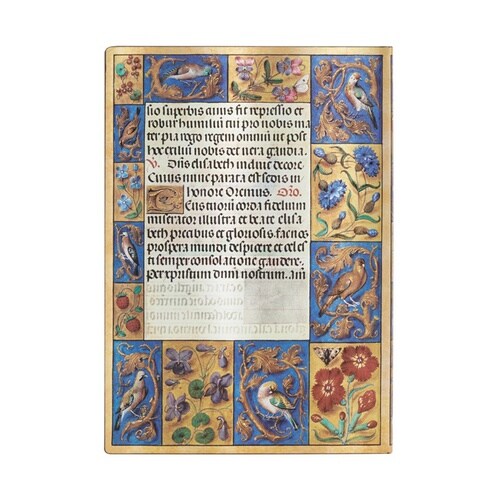 sio superbis anius fit repressio et
robur humili tui pro nobis ma
ter pia rego regem omniū ut post
hoc exiliū nobis det vera gaudia.
V. Diis elisabeth induit decore
Cuius nunc parata est sedis in
honore Oremus. Oro.
Eus tuorū corda fidelium
miserator illustra et beate elisa
beth precibus et gloriosis fac nos
prospera mundi despicere et celes
ti semper consolatione gaudere.
Per xpistum dnm nostrum. am